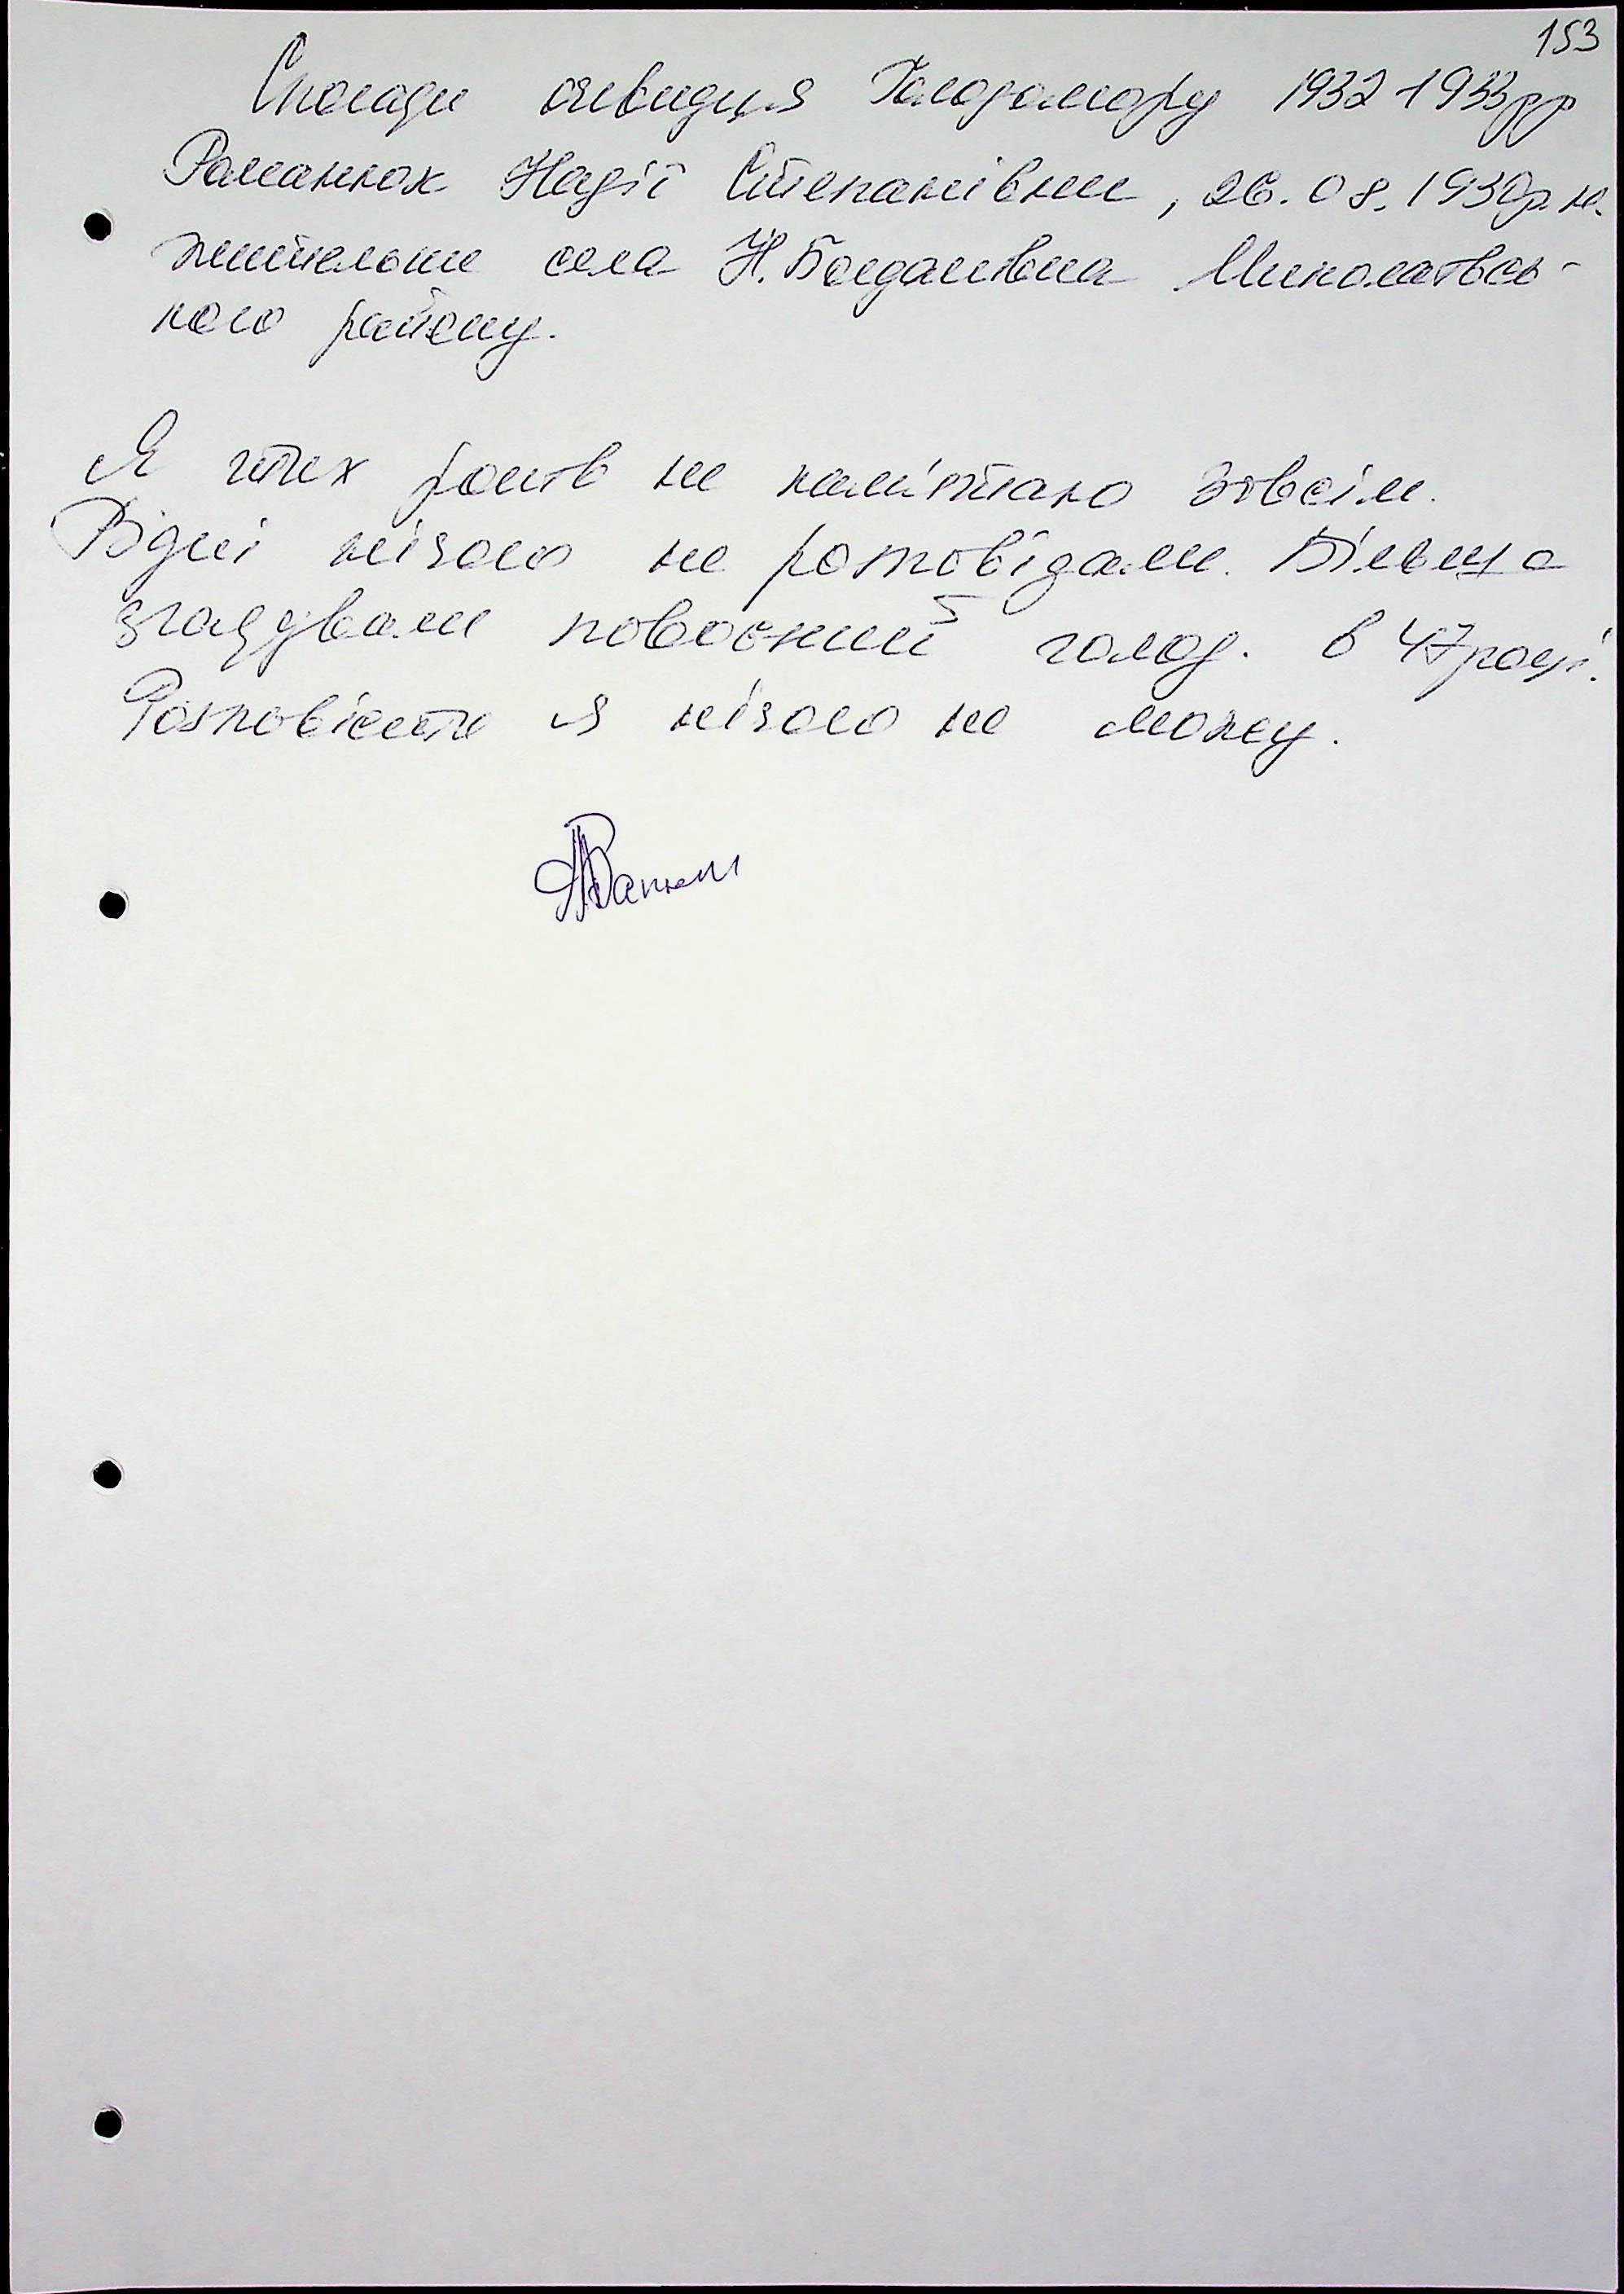 153
Спогади очевидця Голодомору 1932-1933рр
Романюк Надії Степанівни, 26.08.1930р.н.
жительки села Н. Богданівка Миколаївсь-
кого району.
Я тих років не пам'ятаю зовсім.
Рідні нічого не розповідали. Більше
згадували повоєнний голод. в 47 році.
Розповісти я нічого не можу.